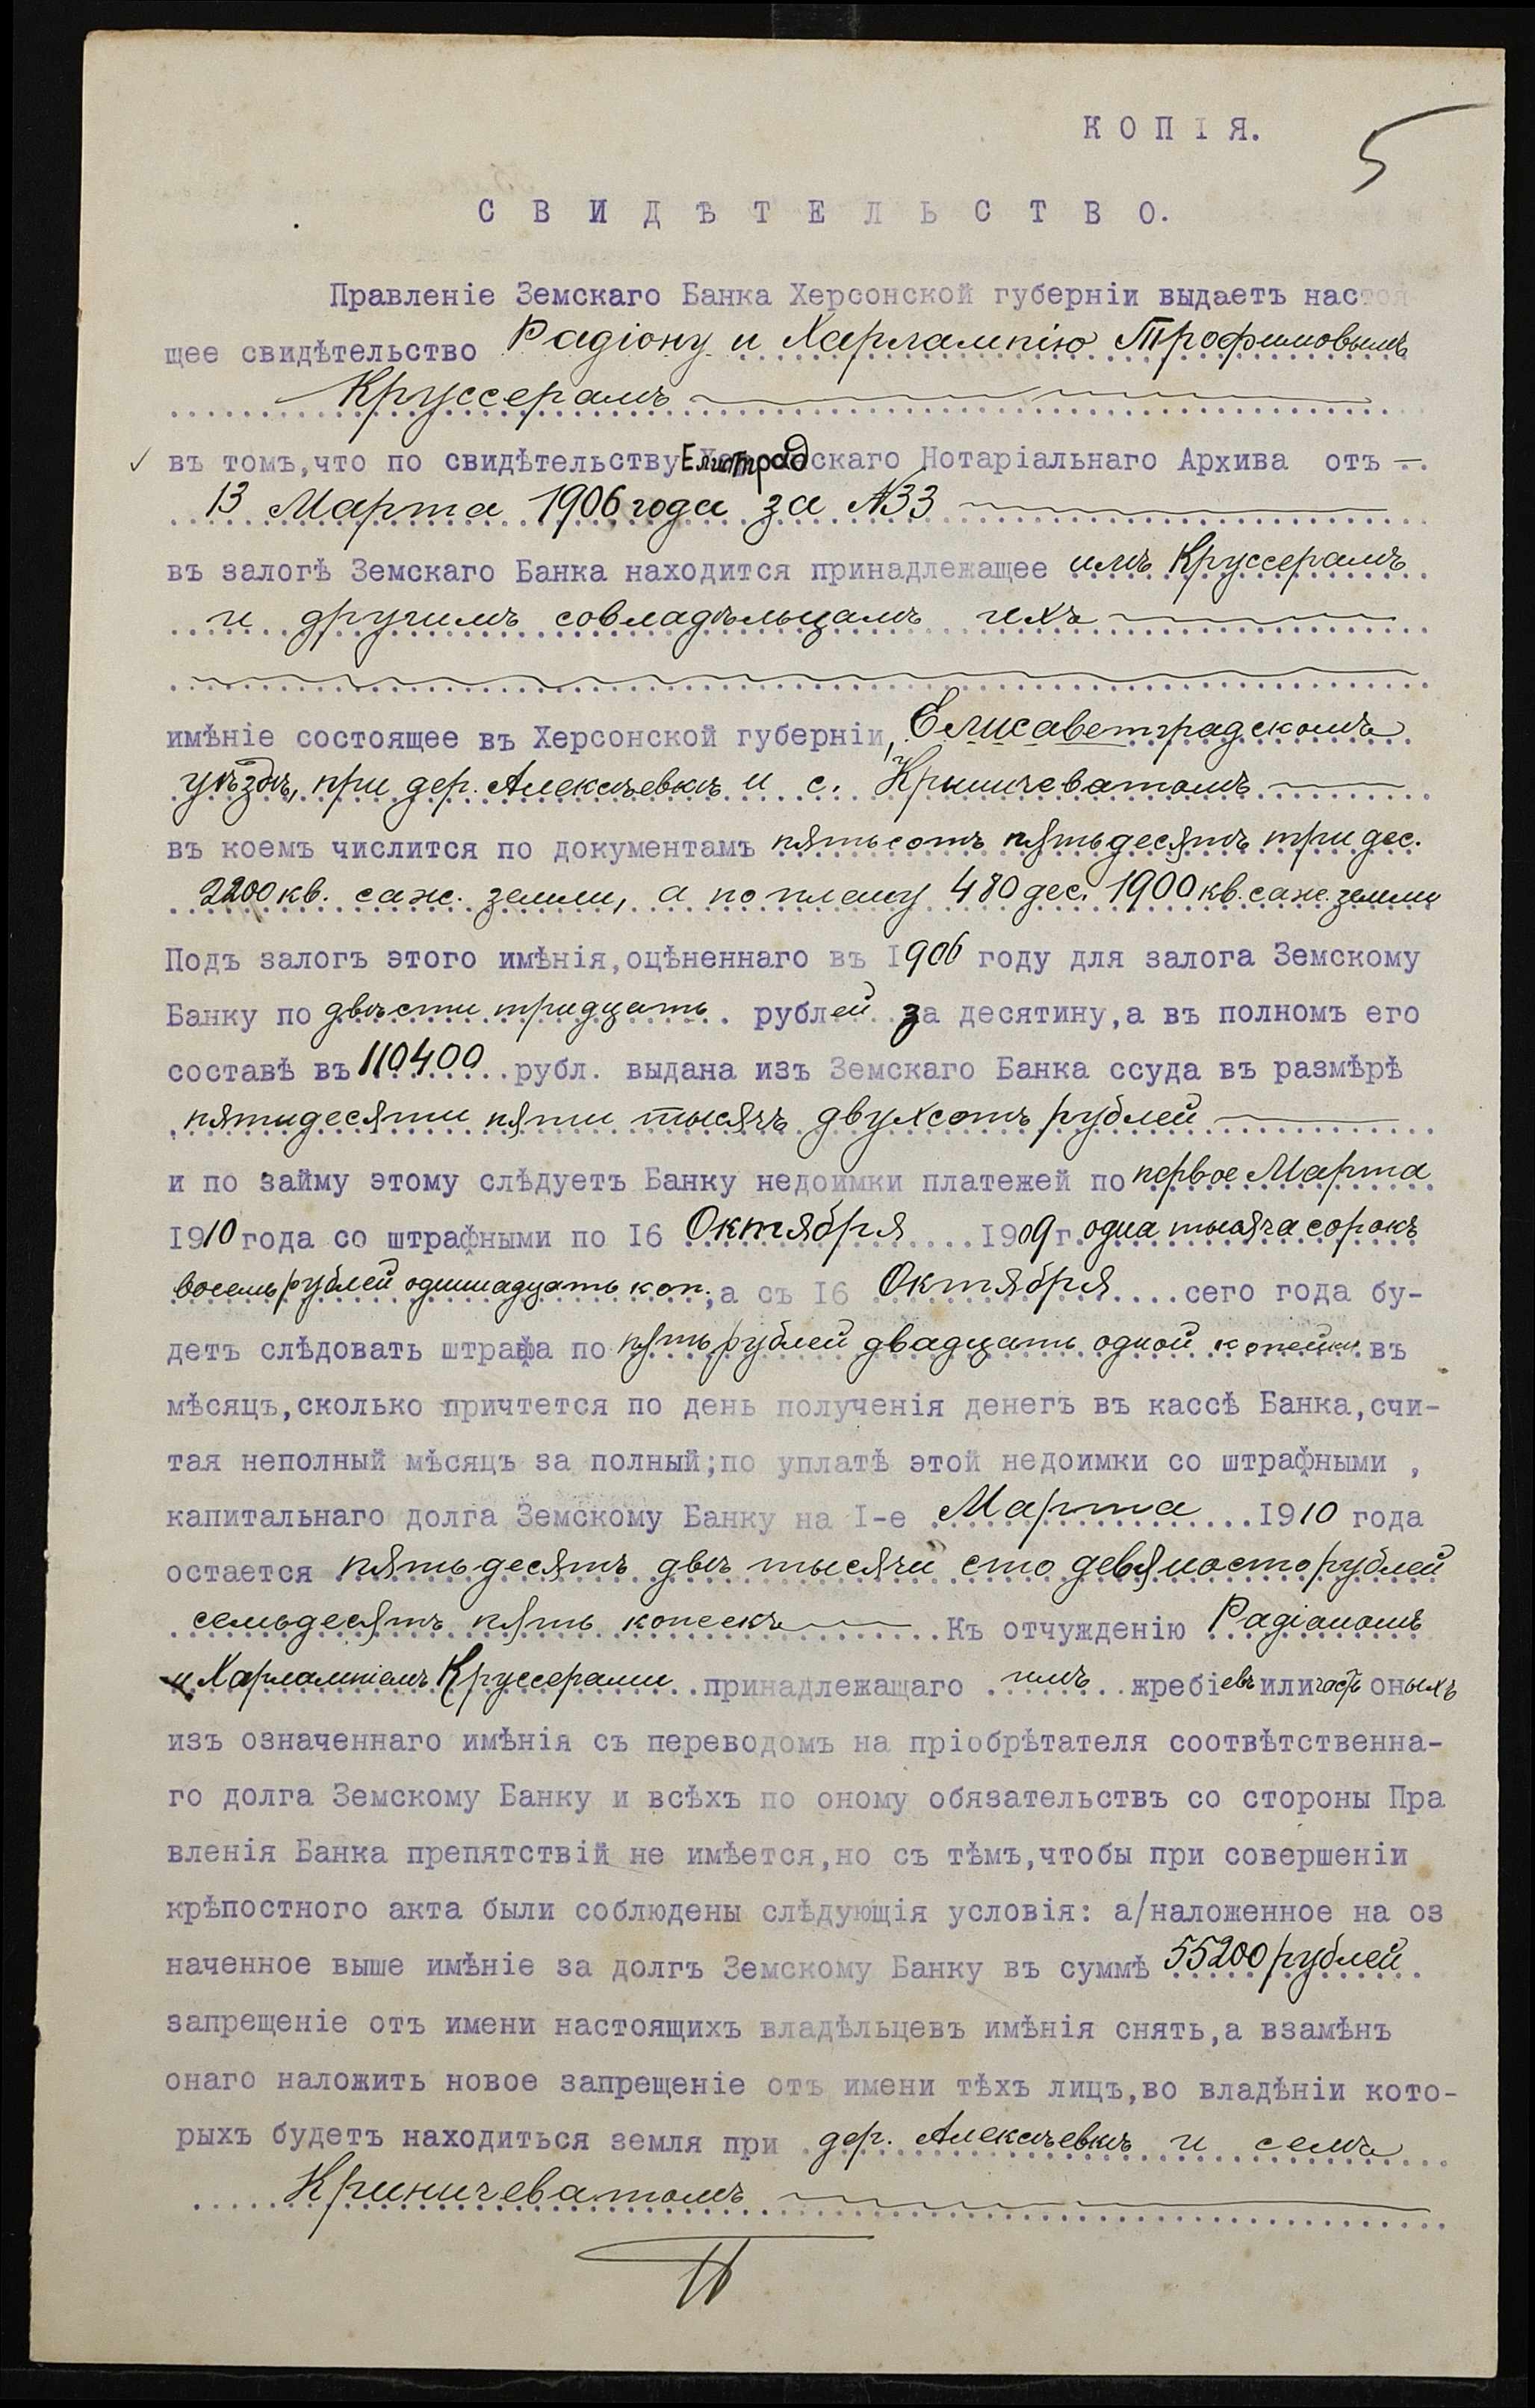 КОПІЯ.
5
СВИДѢТЕЛЬСТВО.
Правленіе Земскаго Банка Херсонской губерніи выдаетъ настоя
щее свидѣтельство Радіону и Харлампію Трофимовымъ
Круссерамъ
въ томъ,что по свидѣтельству Елисаветградскаго Нотаріальнаго Архива отъ
13 Марта 1906 года за №33
въ залогѣ Земскаго Банка находится принадлежащее имъ Круссерамъ
и другимъ совладѣльцамъ ихъ
имѣніе состоящее въ Херсонской губерніи, Елисаветградскомъ
уѣздѣ, при дер. Алексѣевкѣ и с. Криничеватомъ
въ коемъ числится по документамъ пятьсотъ пятьдесятъ три дес.
2200 кв. саж. земли, а по плану 480 дес. 1900 кв. саж. земли
Подъ залогъ этого имѣнія,оцѣненнаго въ 1906 году для залога Земскому
Банку по двѣсти тридцать рублей за десятину,а въ полномъ его
составѣ въ 110400 рубл. выдана изъ Земскаго Банка ссуда въ размѣрѣ
пятидесяти пяти тысячъ двухсотъ рублей
и по займу этому слѣдуетъ Банку недоимки платежей по первое Марта
1910 года со штрафными по 16 Октября 1909 г. одна тысяча сорокъ
восемь рублей одиннадцать коп.,а съ 16 Октября сего года бу-
детъ слѣдовать штрафа по пять рублей двадцать одной копейки въ
мѣсяцъ,сколько причтется по день полученія денегъ въ кассѣ Банка,счи-
тая неполный мѣсяцъ за полный;по уплатѣ этой недоимки со штрафными ,
капитальнаго долга Земскому Банку на 1-е Марта 1910 года
остается пятьдесятъ двѣ тысячи сто девяносто рублей
семьдесятъ пять копеекъ Къ отчужденію Радіономъ
и Харлампіемъ Круссерами принадлежащаго имъ жребіевъ или часть оныхъ
изъ означеннаго имѣнія съ переводомъ на пріобрѣтателя соотвѣтственна-
го долга Земскому Банку и всѣхъ по оному обязательствъ со стороны Пра
вленія Банка препятствій не имѣется,но съ тѣмъ,чтобы при совершеніи
крѣпостного акта были соблюдены слѣдующія условія: а/наложенное на оз
наченное выше имѣніе за долгъ Земскому Банку въ суммѣ 55200 рублей
запрещеніе отъ имени настоящихъ владѣльцевъ имѣнія снять,а взамѣнъ
онаго наложить новое запрещеніе отъ имени тѣхъ лицъ,во владѣніи кото-
рыхъ будетъ находиться земля при дер. Алексѣевкѣ и селѣ
Криничеватомъ